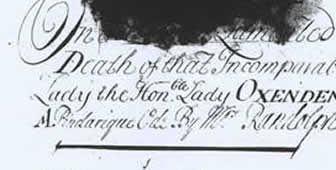 On
Death of that Incomparab
Lady the Hon.ble Lady OXENDEN
A Pindarique Ode By Mrs Randolph